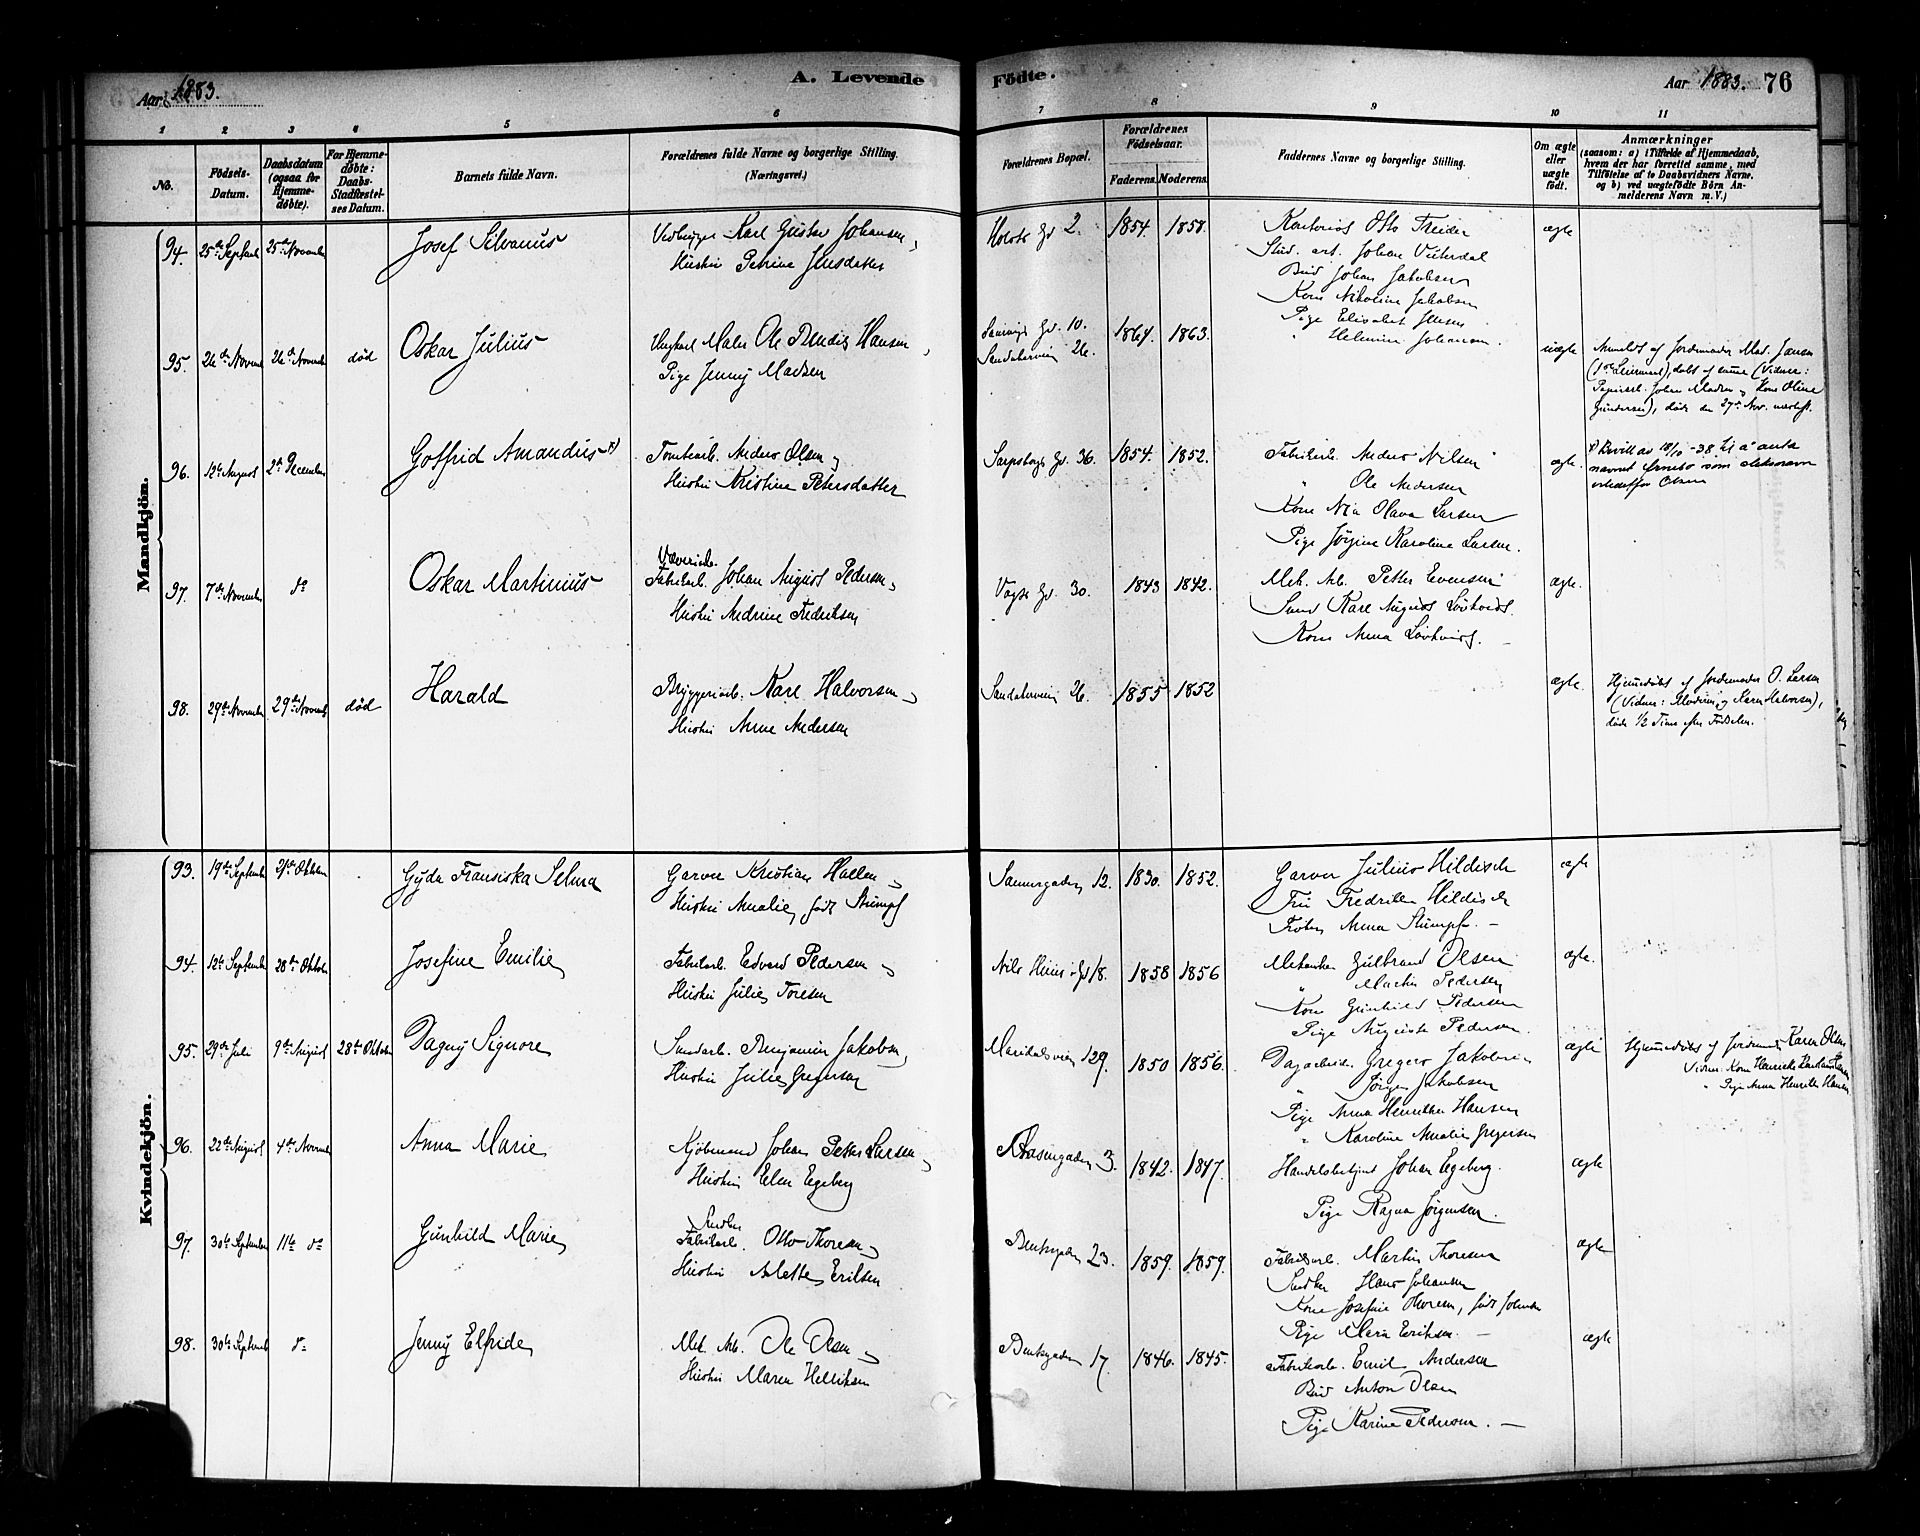 Aar 1883.
A. Levende Födte.
Aar 1883. 76
1 2 3 4 5 6 7 8 9 10 11
No.
Födsels-Datum.
Daabsdatum (ogsaa for Hjemme-döbte).
For Hjemme-döbte: Daabs-Stadfæstel-ses Datum.
Barnets fulde Navn.
Forældrenes fulde Navne og borgerlige Stilling. (Næringsvei.)
Forældrenes Bopæl.
Forældrenes Födselsaar.
Faderens. Moderens.
Faddernes Navne og borgerlige Stilling.
Om ægte eller uægte födt.
Anmærkninger
(saasom: a) i Tilfælde af Hjemmedaab, hvem der har forrettet samme, med Tilföielse af to Daabsvidners Navne, og b) ved uægtefödte Börn An-melderens Navn m. V.)
Mandkjön.
94. 25de Septemb 25de November Josef Silvanus
Karl Gustav Johansen,
Hustru Petrine Jensdatter
Holsts Gd 2. 1854. 1858.
Otto Treider
Stud. art. Johan
Bud Johan Jakobsen
Kone Nikoline Jakobsen
Pige Elisabet Jensen
" Helmine Johansen.
ægte
95. 26de Novemb 26de Novemb død Oskar Julius
Maler Ole Hansen,
Pige Jenny Madsen
Gd. 10.
Sandakerveien 26.
1864. 1863.
uægte
Anmeldt af Jordemoder Mad. Jansen
døbt af samme (Vidner:
Johan Madsen og Kone Oline
Gundersen), døde den 27de Nov. næsteft.
96. 12te August 2den December Gotfrid Amandus x)
Anders Olsen og
Hustru Kristine Petersdatter
Sarpsborgs Gd. 36. 1854. 1852.
Fabrikarb. Anders Nilsen
" Ole Andersen
Kone Olava Larsen
Pige Jørgine Karoline Larsen.
ægte.
x) Bevill. av 18/10 -38 til å anta
navnet som slektsnavn
istedetfor Olsen
97. 7de November do Oskar Martinius
Væveriarb.
Fabrikarb. Johan August Pedersen,
Hustru Andrine Fredriksen
Vogts Gd. 30. 1843 1842.
Mek. Arb. Petter Evensen
Karl August
Kone Anna
ægte.
98. 29de November 29de Novemb død Harald
Bryggeriarb. Karl Halvorsen,
Hustru Anne Andersen
Sandakerveien 26. 1855 1852
ægte.
Hjemmedøbt af Jordemoder O. Larsen
(Vidner: Moderen og Karen Halvorsen),
døde 1/2 Time efter Fødselen.
Kvindekjön.
93. 19de Septemb 21de Oktober Gyda Fransiska Selma
Garver Kristian Hallen,
Hustru Amalie, født Stumpf
Sannergaden 12. 1830. 1852.
Garver Julius Hildisch
Fru Fredrikke Hildisch
Frøken Anna Stumpf.
ægte
94. 12te Septembr 28de Oktober Josefine Emilie
Fabrikarb. Edvard Pedersen,
Hustru Julie Toresen
Nils Huus Gd 18. 1858 1856
Mekaniker Gulbrand Olsen
" Martin Pedersen
Kone Gunhild Pedersen
Pige Auguste Pedersen.
ægte.
95. 29de Juli 9de August 28de Oktober Dagny Signore
Benjamin Jakobsen,
Hustru Julie Gregersen
Maridalsveien 129. 1850 1856.
Dagarbeider Gregers Jakobsen
" Jørgen Jakobsen
Pige Anna Henrikke Hansen
" Karoline Amalie Gregersen
ægte
Hjemmedøbt af Jordemoder Karen Olsen
Vidner: Kone Henrikke
" Pige Anna Henrikke Hansen
96. 22de August 4de Novemb Anna Marie
Kjøbmand Johan Petter Larsen,
Hustru Elen Egeberg
Aasengaden 3. 1842. 1847.
Handelsbetjent Johan Egeberg.
Pige Ragna Jørgensen.
ægte
97. 30te September 11te do Gunhild Marie
Snedker
Fabrikarb. Otto Thoresen,
Hustru Anette Eriksen
Bentsegaden 23. 1859. 1859.
Fabrikarb. Martin Thoresen
Snedker Hans Johansen
Kone Josefine Thoresen, født Johnsen
Pige Maren Eriksen.
ægte
98. 30te Septemb do Jenny Elfride
Mek. Arb. Ole Olsen,
Hustru Maren Helliksen
Bentsegaden 17. 1846. 1845.
Fabrikarb. Emil Andersen
Bud Anton Olsen
Pige Karine Pedersen.
ægte